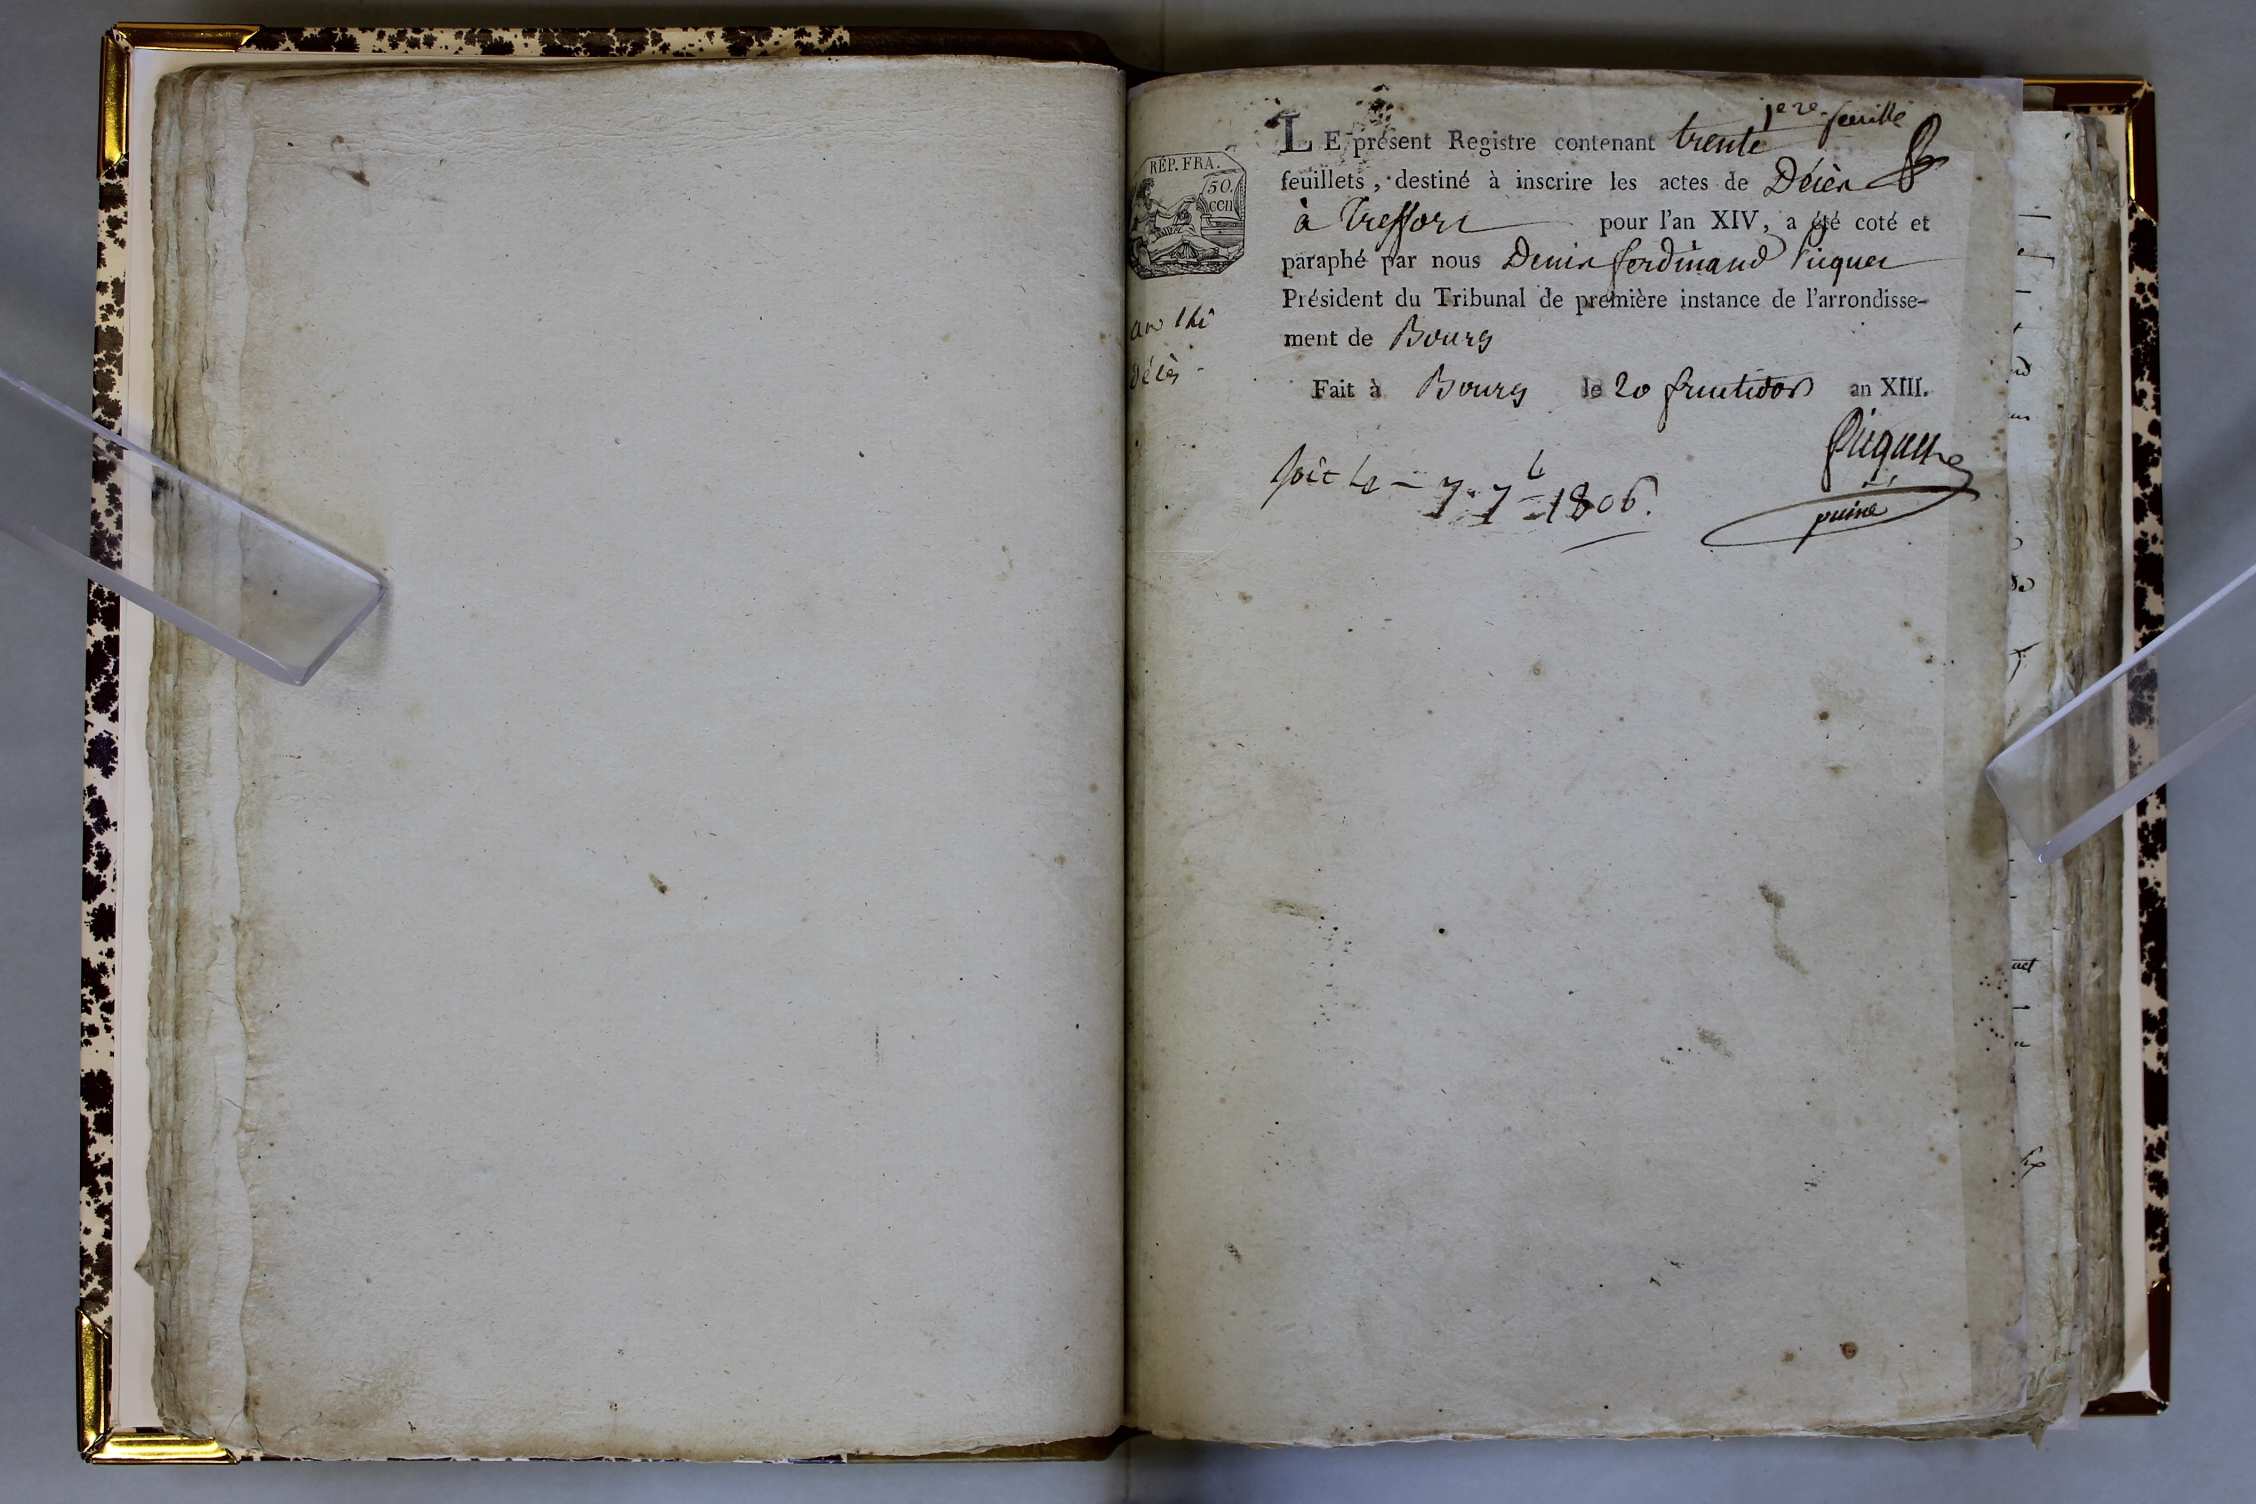 1ere feuille
LE présent Registre contenant trente
feuillets, destiné à inscrire les actes de Décès
à Treffort pour l'an XIV, a été coté et
paraphé par nous Denis ferdinand Picquet
Président du Tribunal de première instance de l'arrondisse-
ment de Bourg
Fait à Bourg le 20 fructidor an XIII.
Picquet
puiné
7. 7b 1806.
RÉP. FRA.
50.
CEN
an 14
décès